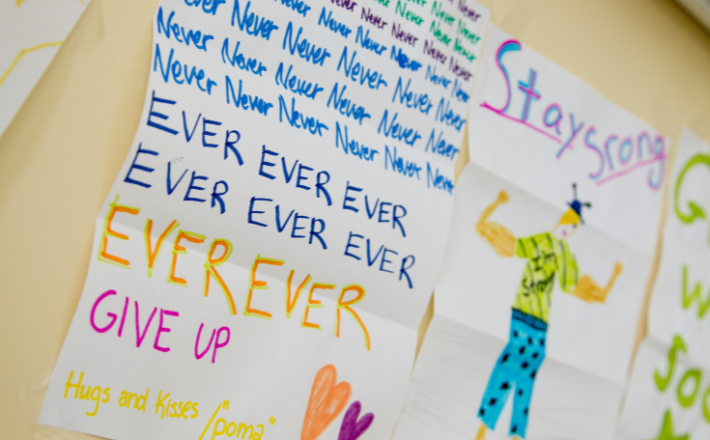 Never
Never Never Never
Never Never Never
Never Never Never Never Never
Never Never Never Never Never Never
ever Never Never Never Never Never
Never Never Never Never Never Never
Never Never Never Never Never Never
EVER EVER EVER
EVER EVER EVER
EVER EVER
GIVE UP
Hugs and Kisses / "poma"
Stay Srong
I'm
strong
G
w
so